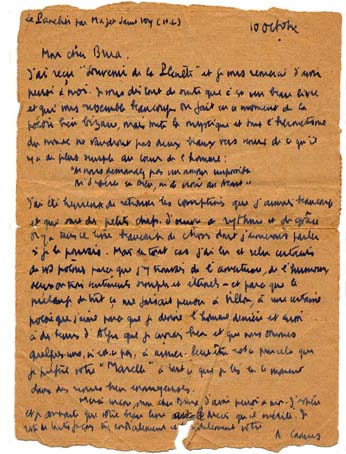 Le Panelier par Mazet Saint Voy (H-L)
10 octobre
Mon cher Bura.
J'ai reçu "Souvenir de la Planète" et je vous remercie d'avoir
pensé à moi. Je vous dis tout de suite que c'est un beau livre
et qui vous ressemble beaucoup. On fait en ce moment de la
poésie bien bizarre, mais toute la mystique et tout l'hermétisme
du monde ne vaudront pas deux beaux vers venus de ce qu'il
y a de plus simple au cœur de l'homme:
"Ne nous demandez pas un amour impossible
Ni d'espérer en Dieu, ni de croire au Néant"
J'ai été heureux de retrouver les comptines que j'aimais beaucoup
et qui sont de petits chefs d'œuvre de rythme et de grâce
Il y a dans ce livre beaucoup de choses dont j'aimerais parler
si je le pouvais. Mais surtout j'ai lu et relu certains
de vos poèmes parce que j'y trouvais de l'amertume, de l'humour,
des sentiments simples et éternels et parce que le
mélange de tout ça me faisait penser à Villon, à une certaine
poésie que j'aime parce que je devine l'homme derrière et aussi
à des terres d'Alger que je connais bien et que nous sommes
quelques-uns, n'est-ce pas, à aimer. Peut-être est-ce pour cela que
je préfère votre "Marelle" à tout ce que je lis en ce moment
dans des revues bien
Merci encore, mon cher Bura, d'avoir pensé à moi. J'espère
et je souhaite que votre beau livre ait le succès qu'il mérite.
et fidèlement votre
A. Camus